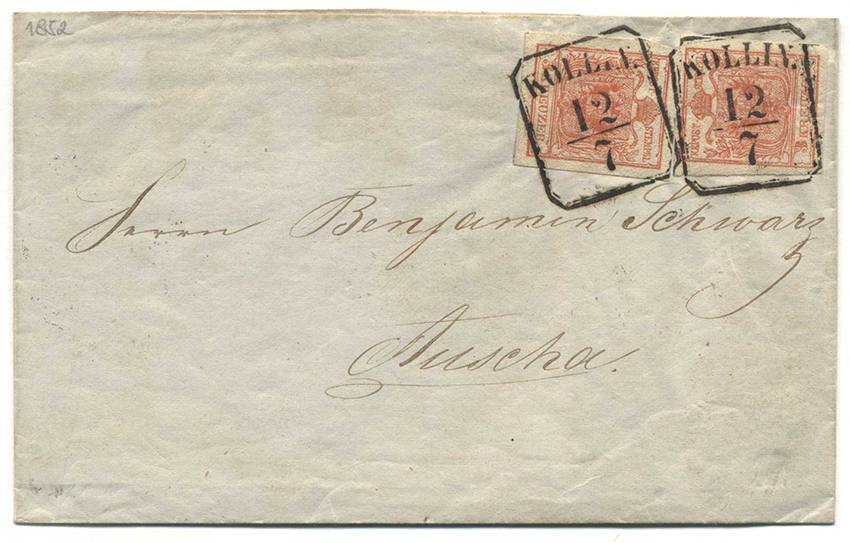 1852
KOLLIN.
12
7
KOLLIN.
12
7
Herrn Benjamin Schwarz
Auscha.